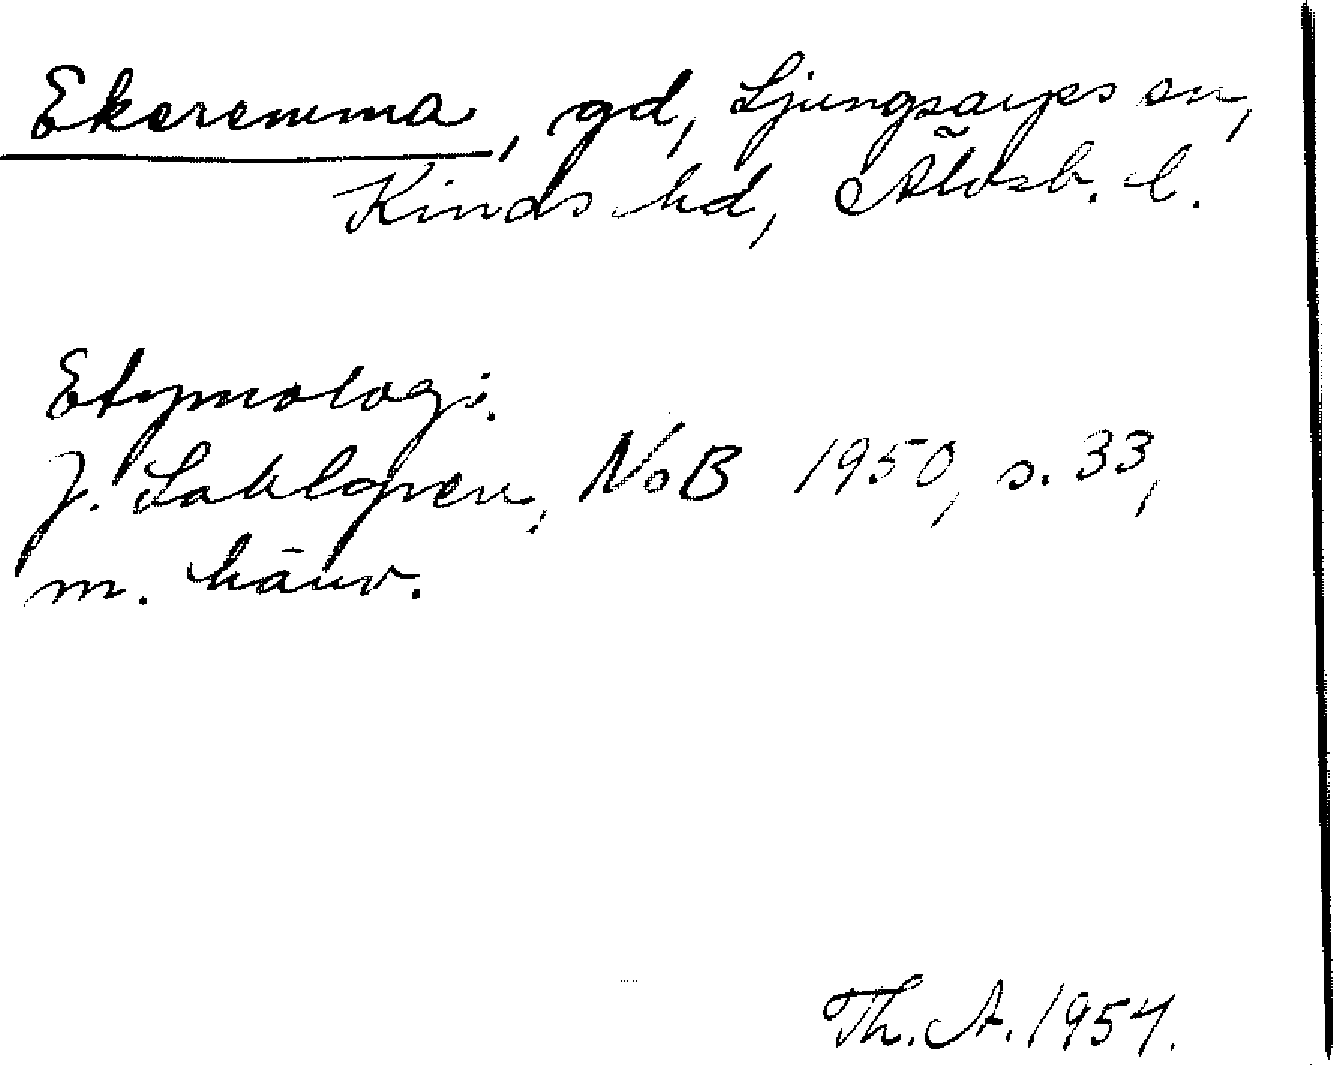 Ekeremma, gd, Ljungsarps sn,
Kinds hd, Älvsb. l.
Etymologi.
J. Sahlgren, NoB 1950, s. 33,
m. hänv.
Th. A. 1954.